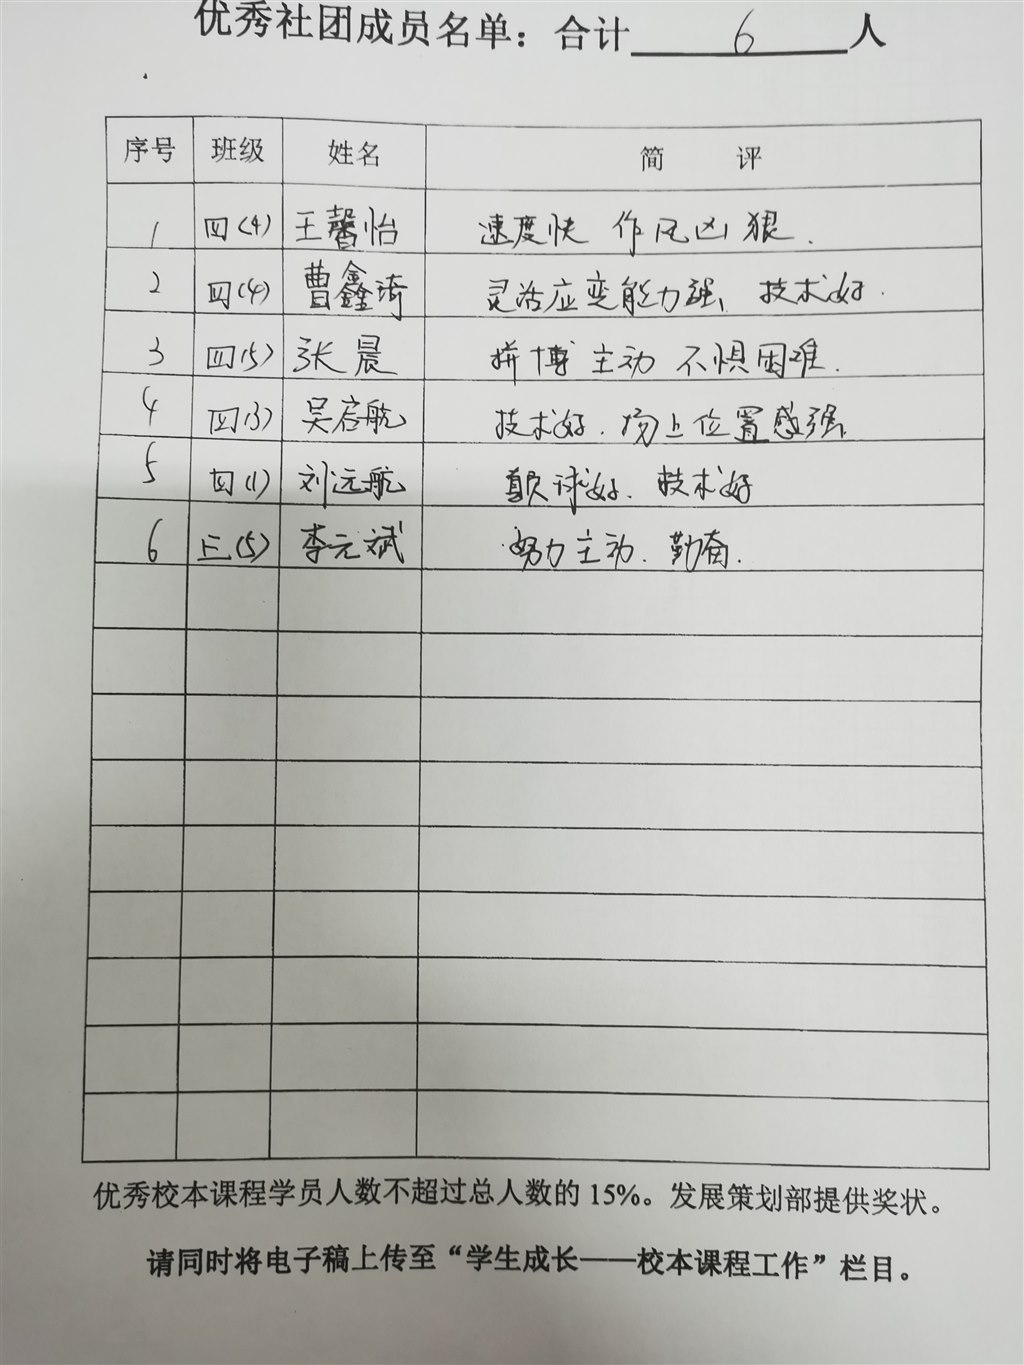 优秀社团成员名单：合计 6 人
序号 班级 姓名 简 评
1 四(4) 王馨怡 速度快 作风凶狠.
2 四(4) 曹鑫琦 灵活应变能力强、技术好.
3 四(5) 张晨 拼博主动 不惧困难.
4 四(3) 吴启航 技术好.场上位置感强
5 四(1) 刘远航 颠球好.技术好
6 三(5) 李元斌 努力主动.勤奋.
优秀校本课程学员人数不超过总人数的 15%。发展策划部提供奖状。
请同时将电子稿上传至“学生成长——校本课程工作”栏目。